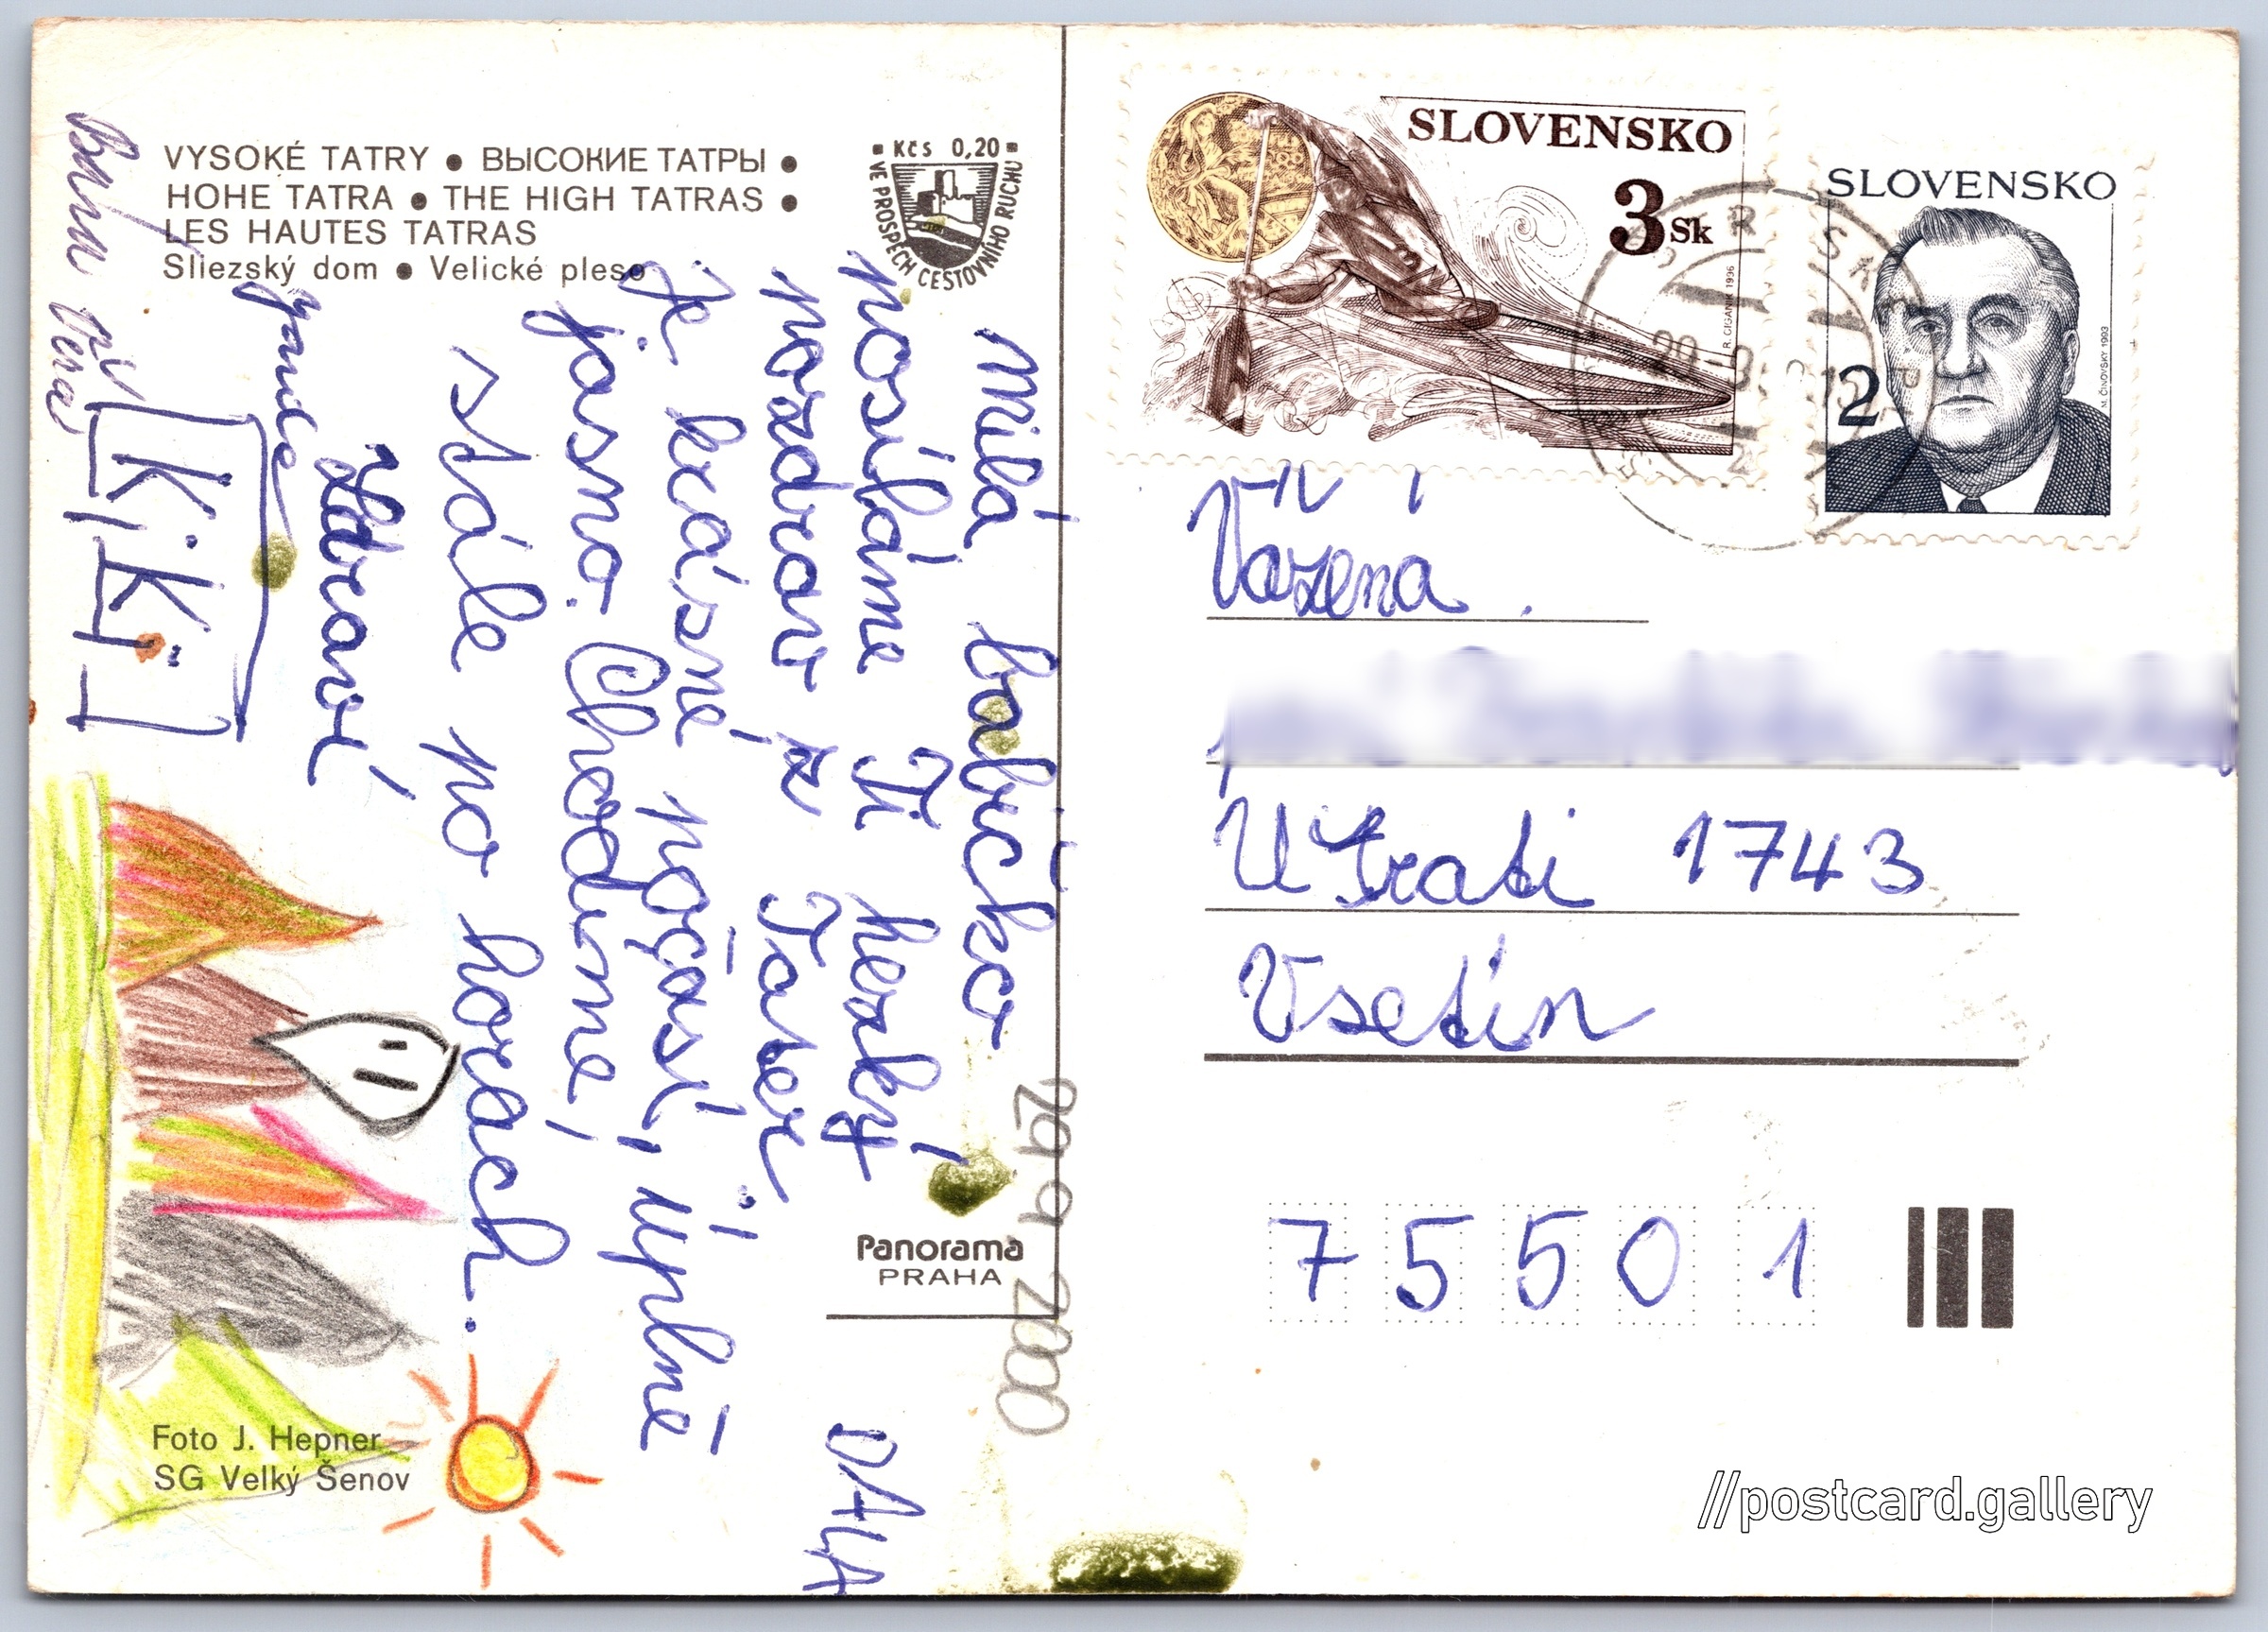 VYSOKÉ TATRY ● ВЫСОКИЕ ТАТРЫ ●
HOHE TATRA ● THE HIGH TATRAS ●
LES HAUTES TATRAS
Sliezský dom ● Velické pleso
Kčs 0,20
VE PROSPĚCH CESTOVNÍHO RUCHU
Milá babičko
posíláme Ti hezký
pozdrav z Tater
Je krásné počasí, úplně
jasno. Chodíme,
stále po horách.
Zdraví
KiKi
29 9 2000
Panorama
PRAHA
Foto J. Hepner
SG Velký Šenov
SLOVENSKO
3 Sk
R. CIGÁNIK 1996
SLOVENSKO
2
M. ČINOVSKÝ 1993
Vážená
U Trati 1743
Vsetín
7 5 5 0 1
//postcard.gallery